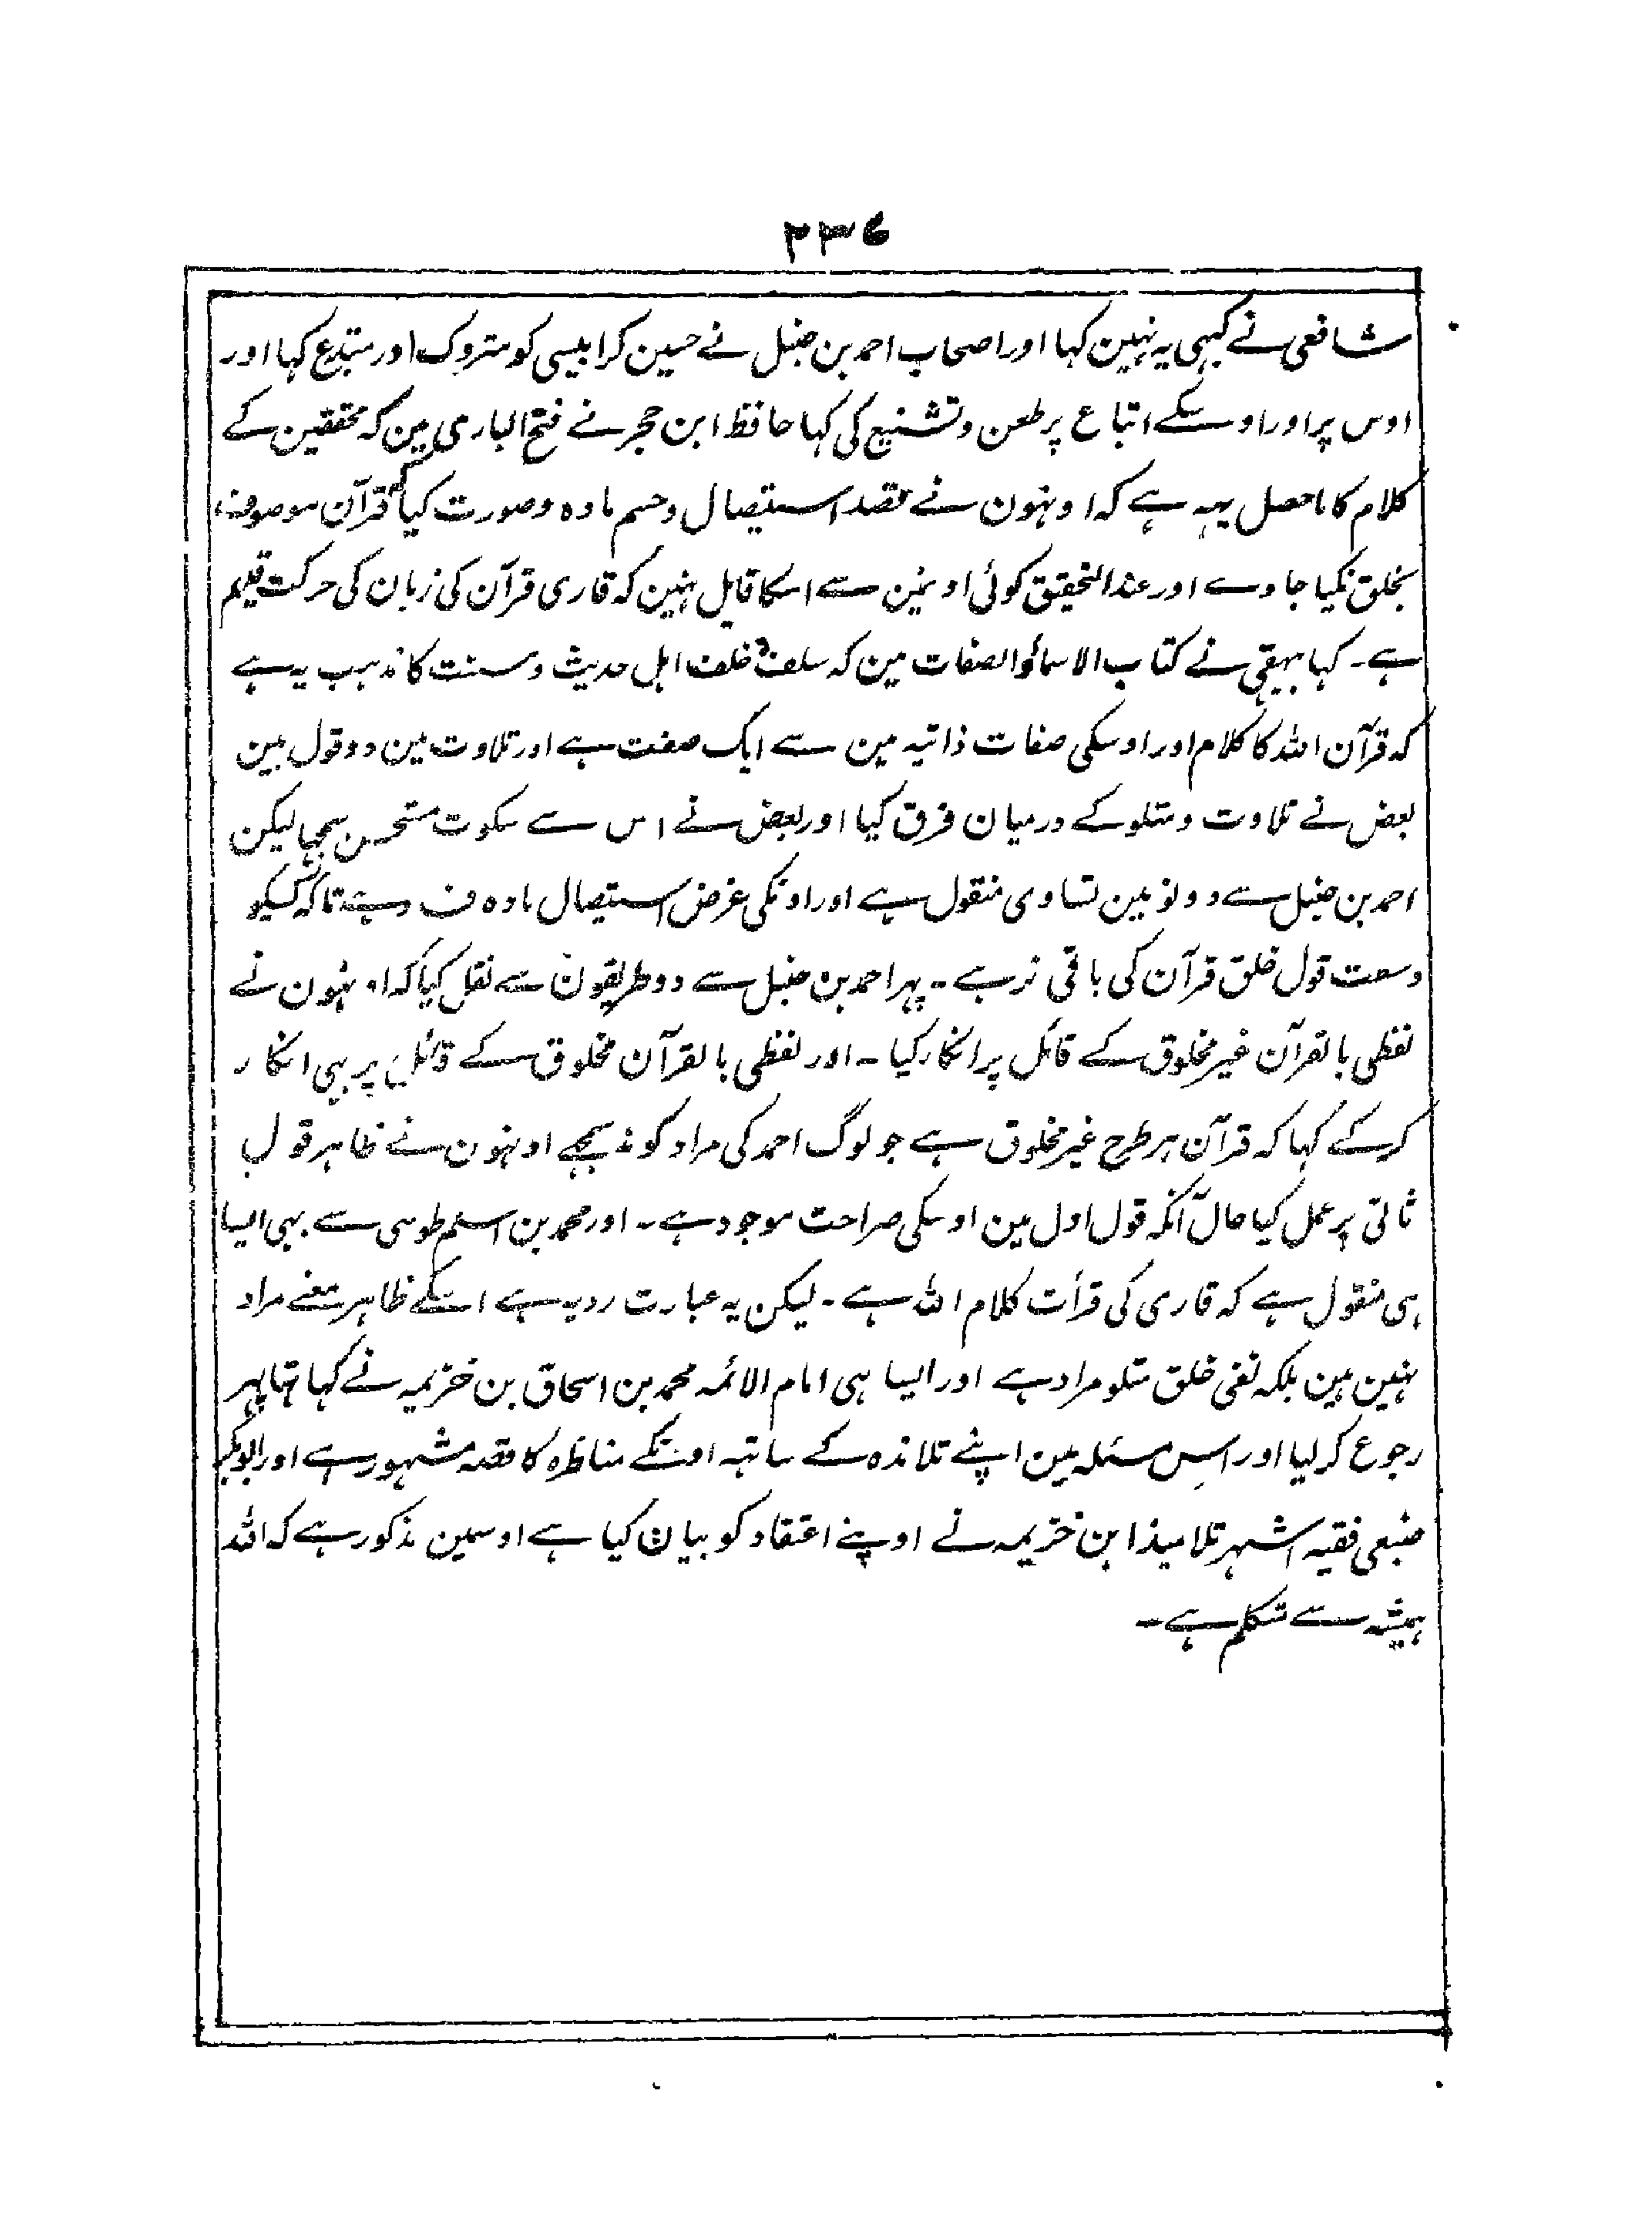 ۲۳۶
شافعی نے کبہی یہ نہین کہا اور اصحاب احمد بن حنبل نے حسین کرابیسی کو متروک اور مبتدع کہا اور
اوس پر اور اوسکے اتباع پر طعن و تشنیع کی کہا حافظ ابن حجر نے فتح الباری مین کہ محققین کے
کلام کا ماحصل یہہ ہے کہ اونہون نے قصد استیصال و حسم مادہ و صورت کیا کہ قرآن موصوف
بخلق نکیا جاوے اور عند التحقیق کوئی اونمین سے اسکا قایل نہین کہ قاری قرآن کی زبان کی حرکت قدیم
ہے۔ کہا بیہقی نے کتاب الاسماؤ الصفات مین کہ سلف و خلف اہل حدیث و سنت کا مذہب یہ ہے
کہ قرآن اللہ کا کلام اور اوسکی صفات ذاتیہ مین سے ایک صفت ہے اور تلاوت مین دو قول ہین
بعض نے تلاوت و متلو کے درمیان فرق کیا اور بعض نے اس سے سکوت مستحسن سمجہا لیکن
احمد بن حنبل سے دونو مین تساوی منقول ہے اور اونکی غرض استیصال مادہ ف ہے تاکہ کسیکو
وسعت قول خلق قرآن کی باقی نرہے۔ پہر احمد بن حنبل سے دو طریقون سے نقل کیا کہ اونہون نے
لفظی بالقرآن غیر مخلوق کے قائل پر انکار کیا۔ اور لفظی بالقرآن مخلوق کے قائل پر بہی انکار
کرکے کہا کہ قرآن ہر طرح غیر مخلوق ہے جو لوگ احمد کی مراد کو نہ سمجہے اونہون نے ظاہر قول
ثانی پر عمل کیا حال آنکہ قول اول مین اوسکی صراحت موجود ہے۔ اور محمد بن اسلم طوسی سے بہی ایسا
ہی منقول ہے کہ قاری کی قرأت کلام اللہ ہے۔ لیکن یہ عبارت ردیہ ہے اسکے ظاہر معنے مراد
نہین ہین بلکہ نفی خلق متلو مراد ہے اور ایسا ہی امام الائمہ محمد بن اسحاق بن خزیمہ نے کہا تہا پہر
رجوع کر لیا اور اس مسئلہ مین اپنے تلامذہ کے ساتہہ اونکے مناظرہ کا قصہ مشہور ہے اور ابوبکر
ضبعی فقیہ اشہر تلامیذ ابن خزیمہ نے اوپنے اعتقاد کو بیان کیا ہے اوسمین مذکور ہے کہ اللہ
ہمیشہ سے متکلم ہے۔